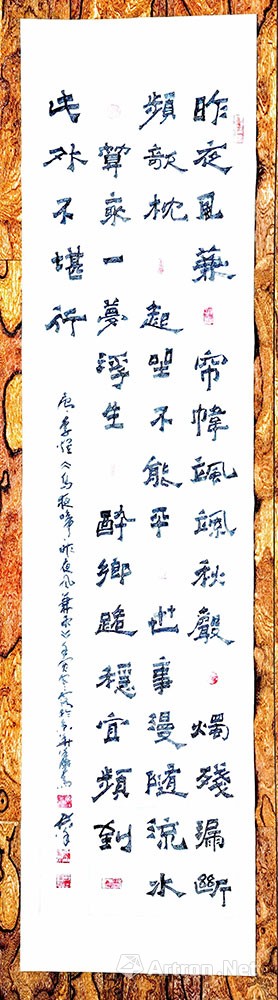 昨夜風兼 帘幃颯颯秋聲 燭殘漏斷
頻欹枕 起坐不能平 世事漫隨流水
算來一夢浮生 醉鄉路穩宜頻到
此外不堪行
唐·李煜《烏夜啼·昨夜風兼雨》
Artron.Net